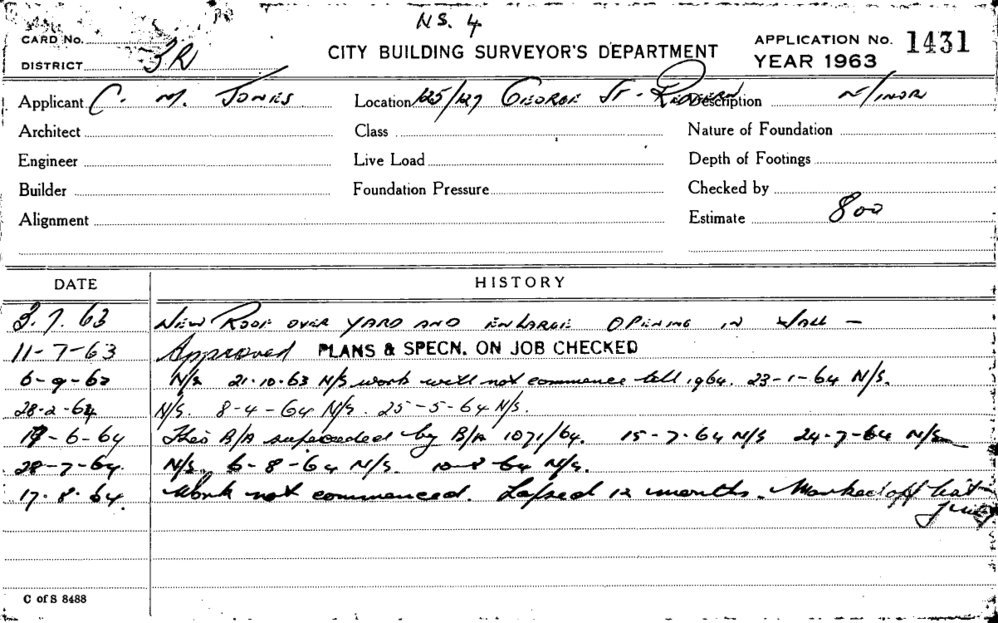 NS. 4
CARD No.
DISTRICT 3R
CITY BUILDING SURVEYOR'S DEPARTMENT
APPLICATION No. 1431
YEAR 1963
Applicant C. M. JONES Location 125/127 GEORGE ST. REDFERN Description
Architect Class Nature of Foundation
Engineer Live Load Depth of Footings
Builder Foundation Pressure Checked by
Alignment Estimate 800
DATE HISTORY
3.7.63 NEW ROOF OVER YARD AND ENLARGE OPENING IN WALL -
11-7-63 Approved PLANS & SPECN. ON JOB CHECKED
6-9-63 N/S 21.10.63 N/S work will not commence till 1964. 23-1-64 N/S.
28-2-64 N/S. 8-4-64 N/S. 25-5-64 N/S.
19-6-64 This B/A superceded by B/A 1071/64. 15-7-64 N/S 24-7-64 N/S
28-7-64. N/S. 6-8-64 N/S. 10-8-64 N/S.
17.8.64. Work not commenced. Lapsed 12 months. Marked off
C of S 8488